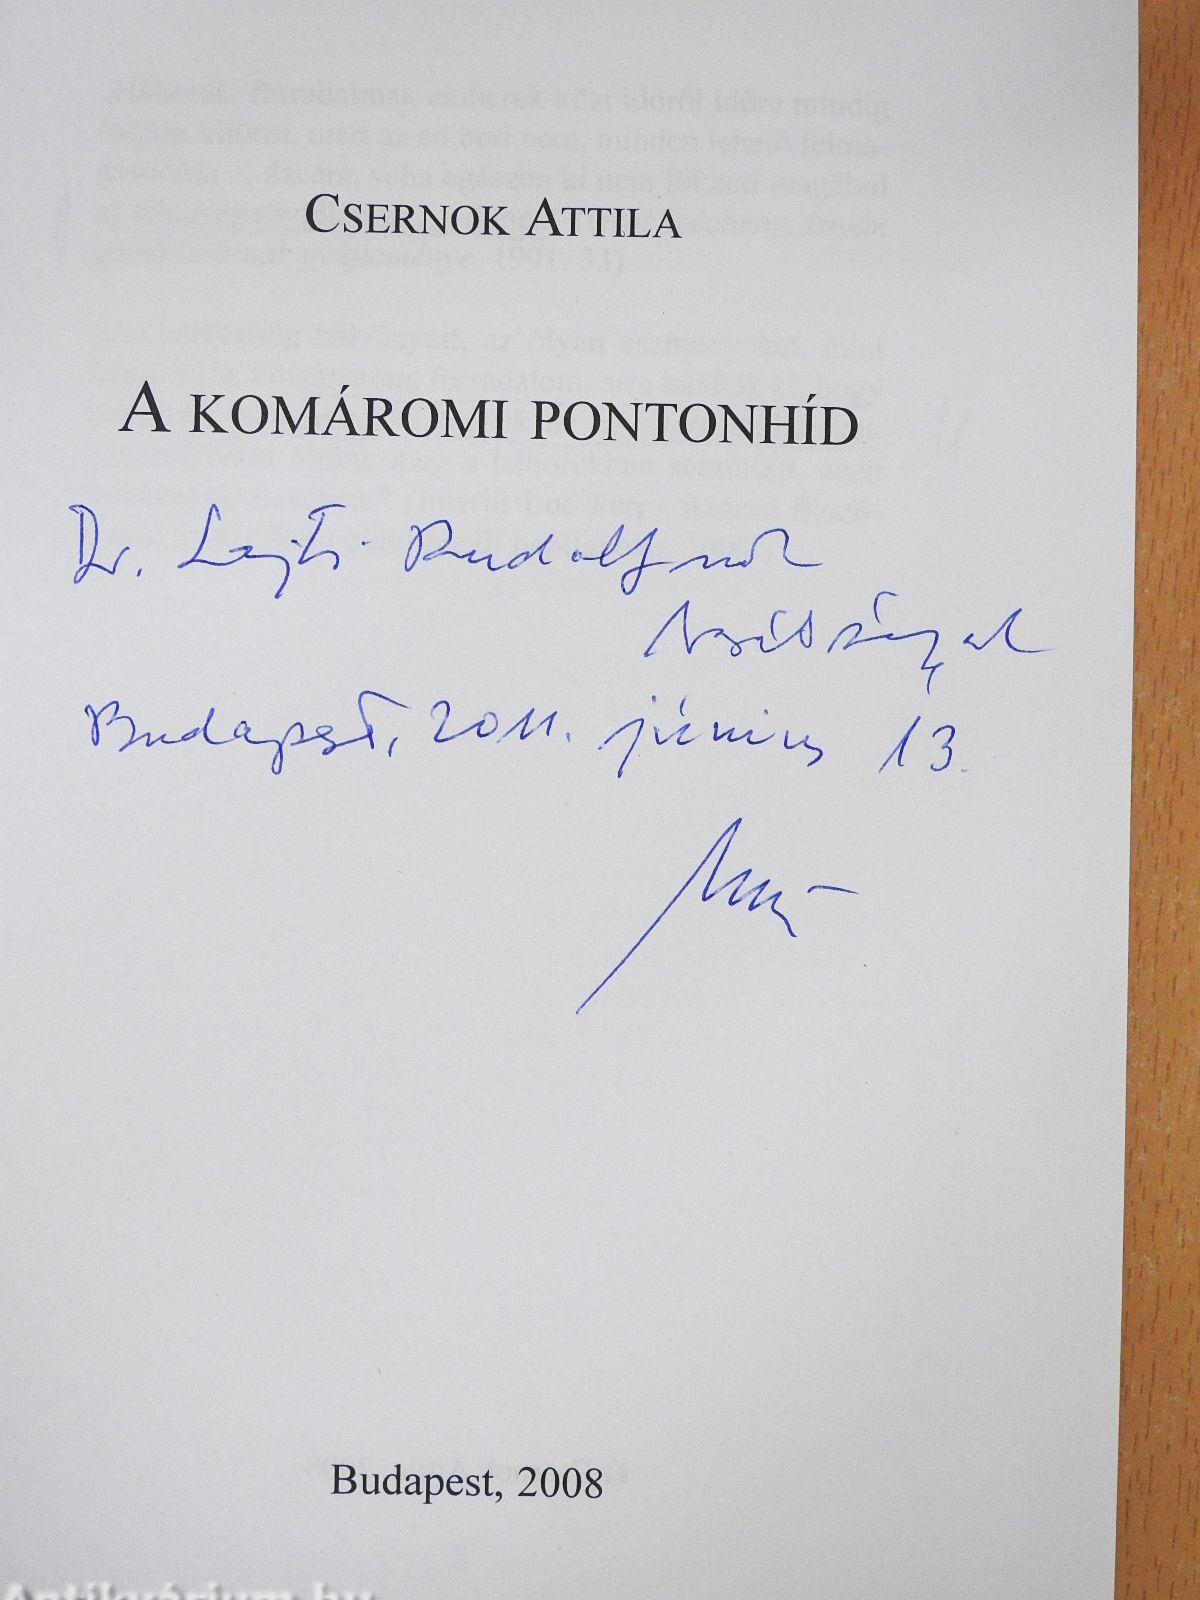 CSERNOK ATTILA
A KOMÁROMI PONTONHÍD
Dr. Lajti Rudolfnak
barátsággal
Budapest, 2011. június 13.
Budapest, 2008
Antikvárium.hu